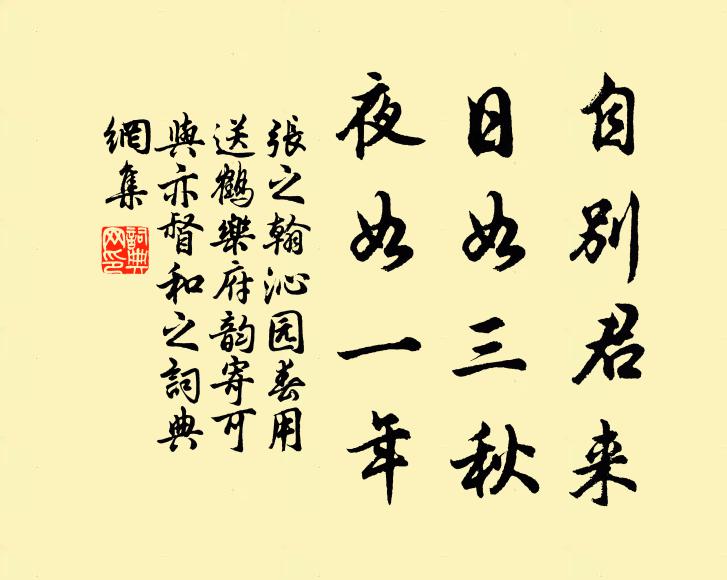 自别君来
日如三秋
夜如一年
張之翰沁园春用
送鶴樂府韵寄可
與亦督和之詞典
網集
詞典網印